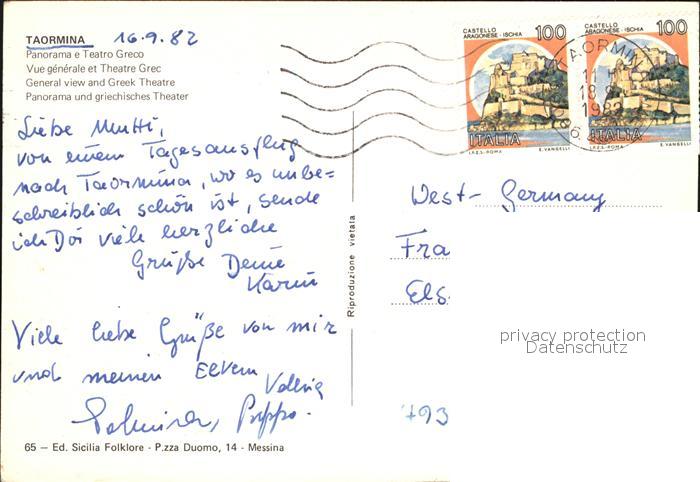 TAORMINA 16.9.82
Panorama e Teatro Greco
Vue générale et Theatre Grec
General view and Greek Theatre
Panorama und griechisches Theater
Liebe Mutti,
von einem Tagesausflug
nach Taormina, wo es unbe=
schreiblich schön ist, sende
ich Dir viele herzliche
Grüße Deine
Karin
Viele liebe Grüße von mir
und meinen Eltern
Peppo.
65 — Ed. Sicilia Folklore - P.zza Duomo, 14 - Messina
Riproduzione vietata
CASTELLO
ARAGONESE - ISCHIA 100
ITALIA
I.P.Z.S. - ROMA E. VANGELLI
CASTELLO
ARAGONESE - ISCHIA 100
ITALIA
I.P.Z.S. - ROMA E. VANGELLI
TAORMINA
West- Germany
Fra
Els
privacy protection
Datenschutz